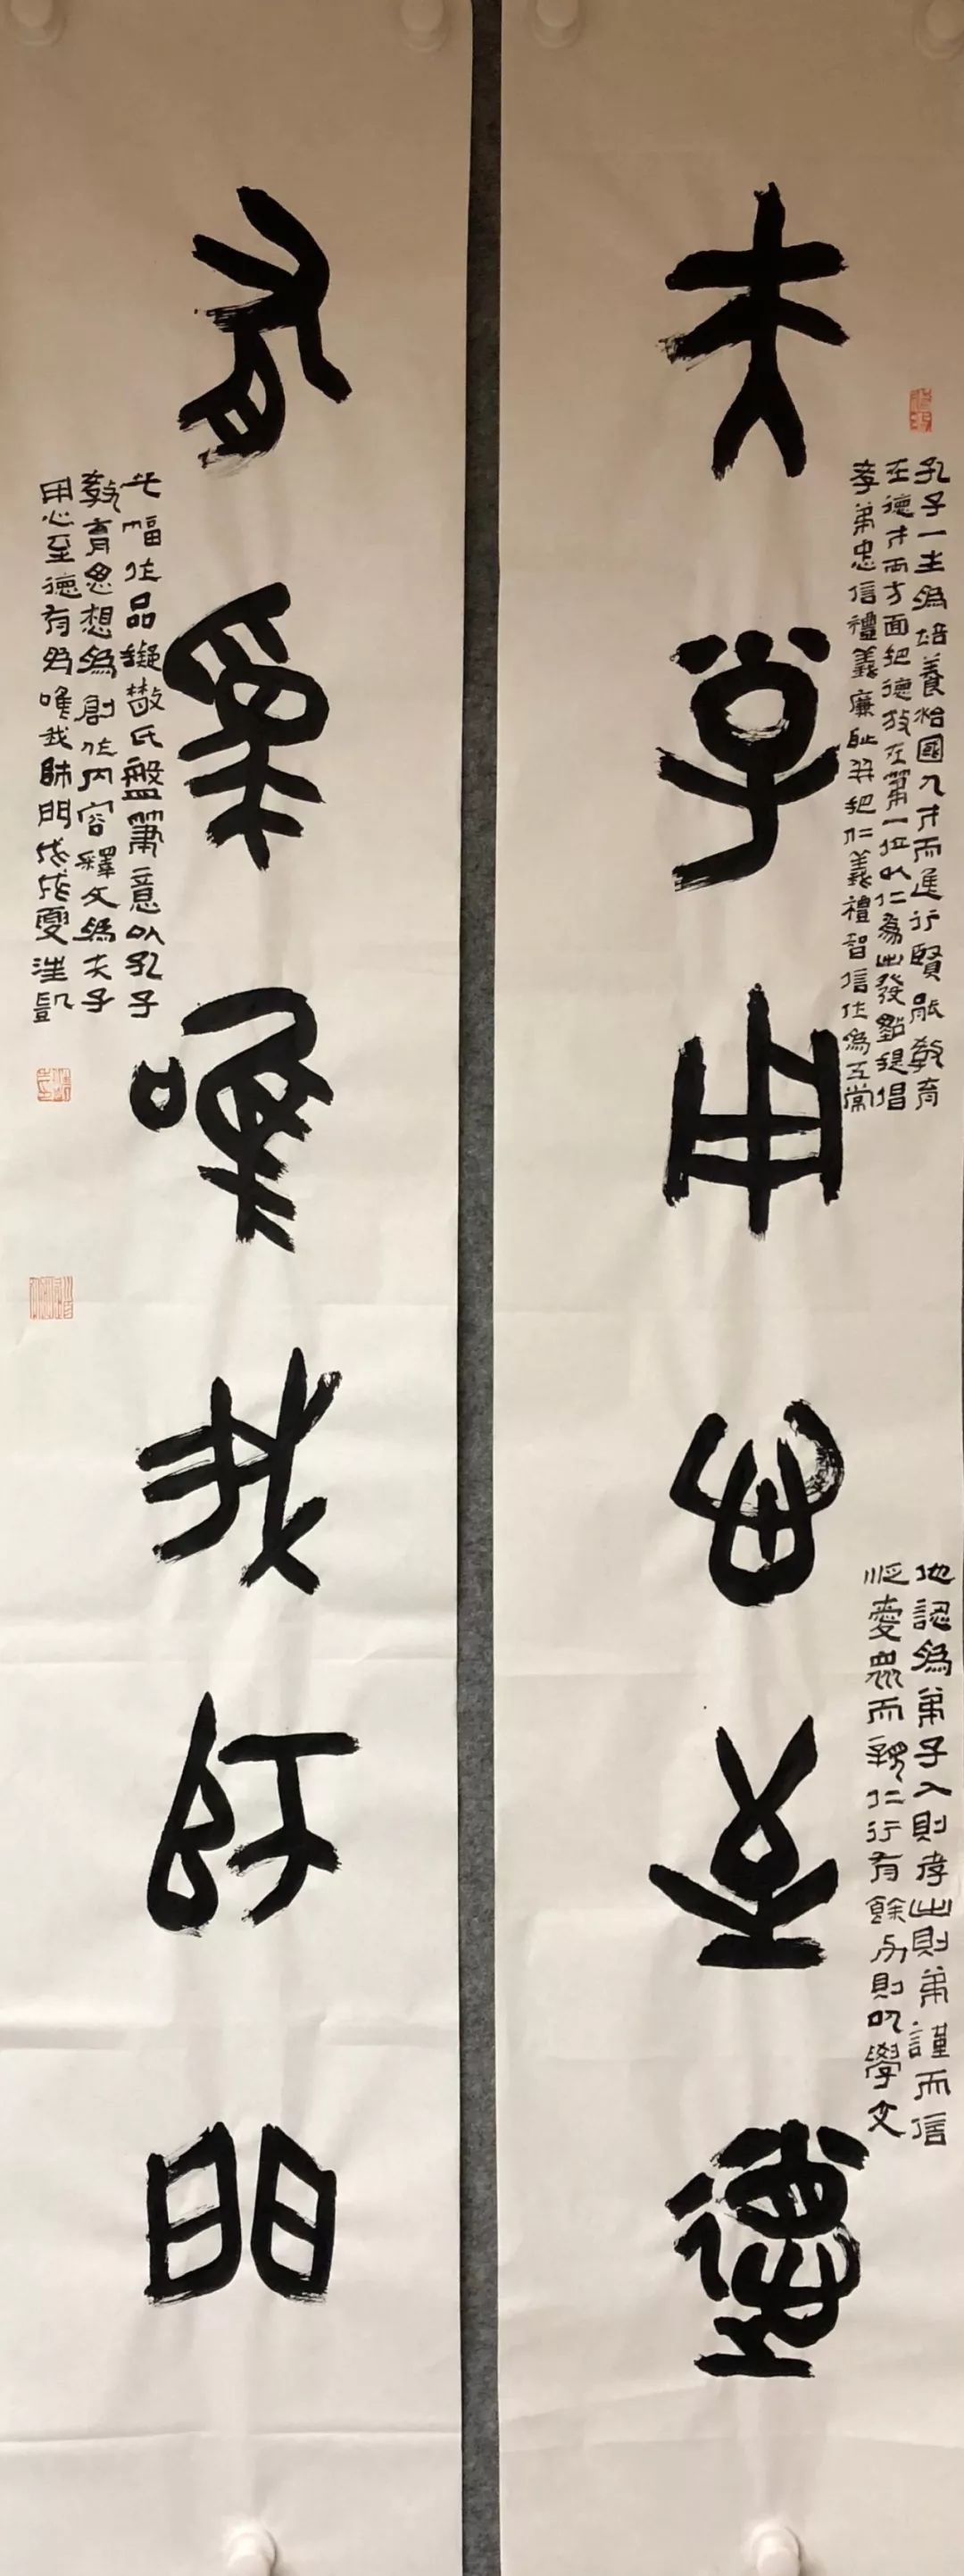 夫子用心至德
孔子一生為培養治國人才而進行賢能教育
在德才兩方面把德放在第一位以仁為出發點提倡
孝弟忠信禮義廉恥并把仁義禮智信作為五常
他認為弟子入則孝出則弟謹而信
汎愛眾而親仁行有餘力則以學文
有為唯我師門
此幅作品擬散氏盤筆意以孔子
教育思想為創作內容釋文為夫子
用心至德有為唯我師門戊戌夏